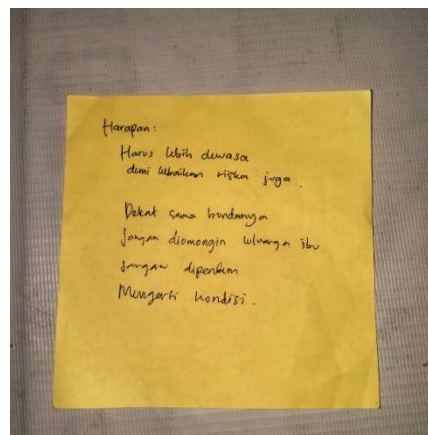 Harapan:
Harus lebih dewasa
demi kebaikan riska juga.
Dekat sama bundanya
Jangan diomongin keluarga ibu
Jangan
Mengerti kondisi.